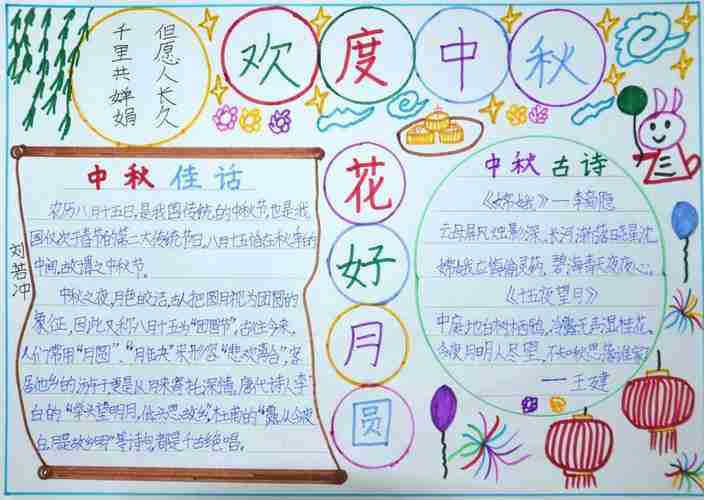 但愿人长久
千里共婵娟
欢度中秋
中秋佳话
农历八月十五日,是我国传统的中秋节,也是我
国仅次于春节的第二大传统节日,八月十五恰在秋季的
中间,故谓之中秋节。
中秋之夜,月色皎洁,古人把圆月视为团圆的
象征,因此又称八月十五为“团圆节”,古往今来,
人们常用“月圆”、“月缺”来形容“悲欢离合”,客
居他乡的游子更是以月来寄托深情,唐代诗人李
白的“举头望明月,低头思故乡”,杜甫的“露从今夜
白,月是故乡明”等诗句,都是千古绝唱。
刘若冲
花好月圆
中秋古诗
《嫦娥》——李商隐
云母屏风烛影深,长河渐落晓星沈
嫦娥应悔偷灵药,碧海青天夜夜心。
《十五夜望月》
中庭地白树栖鸦,冷露无声湿桂花。
今夜月明人尽望,不知秋思落谁家
——王建